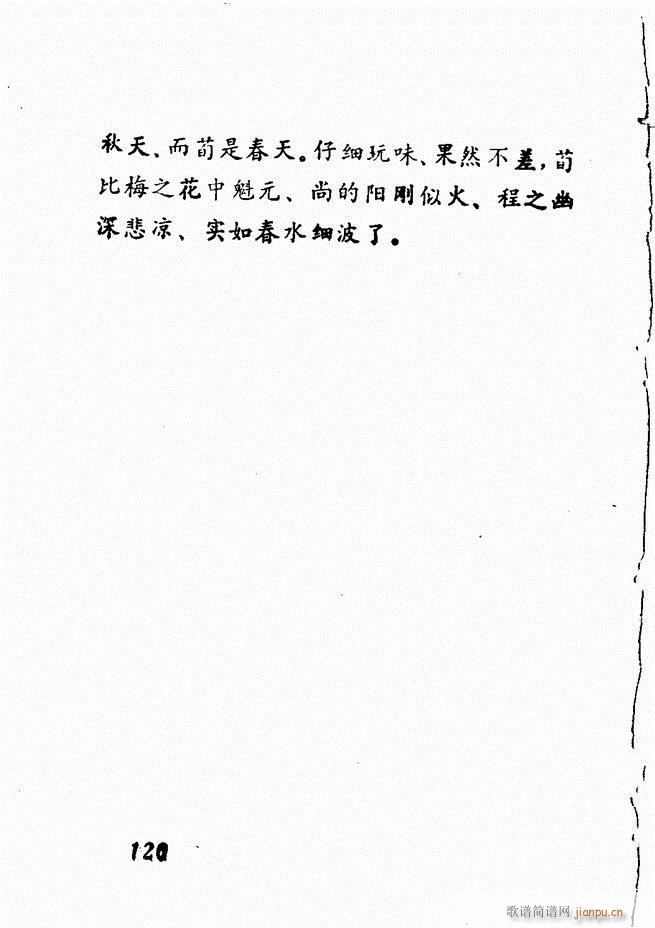 秋天、而荀是春天。仔细玩味、果然不差，荀
比梅之花中魁元、尚的阳刚似火、程之幽
深悲凉、实如春水细波了。
120
歌谱简谱网 jianpu.cn